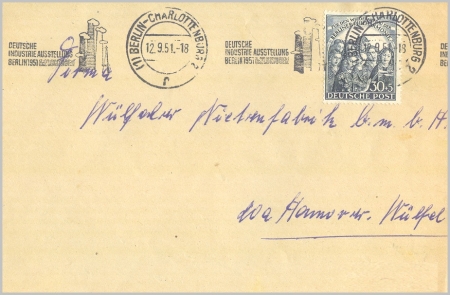 DEUTSCHE
INDUSTRIE AUSSTELLUNG
BERLIN 1951
(1) BERLIN-CHARLOTTENBURG 2
12.9.51.-18
r
DEUTSCHE
INDUSTRIE AUSSTELLUNG
BERLIN 1951
BERLIN-CHARLOTTENBURG 2
12.9.51.-18
30+5
DEUTSCHE POST
Firma
Wülfeler Nietenfabrik G.m.b.H.
Hannover-Wülfel